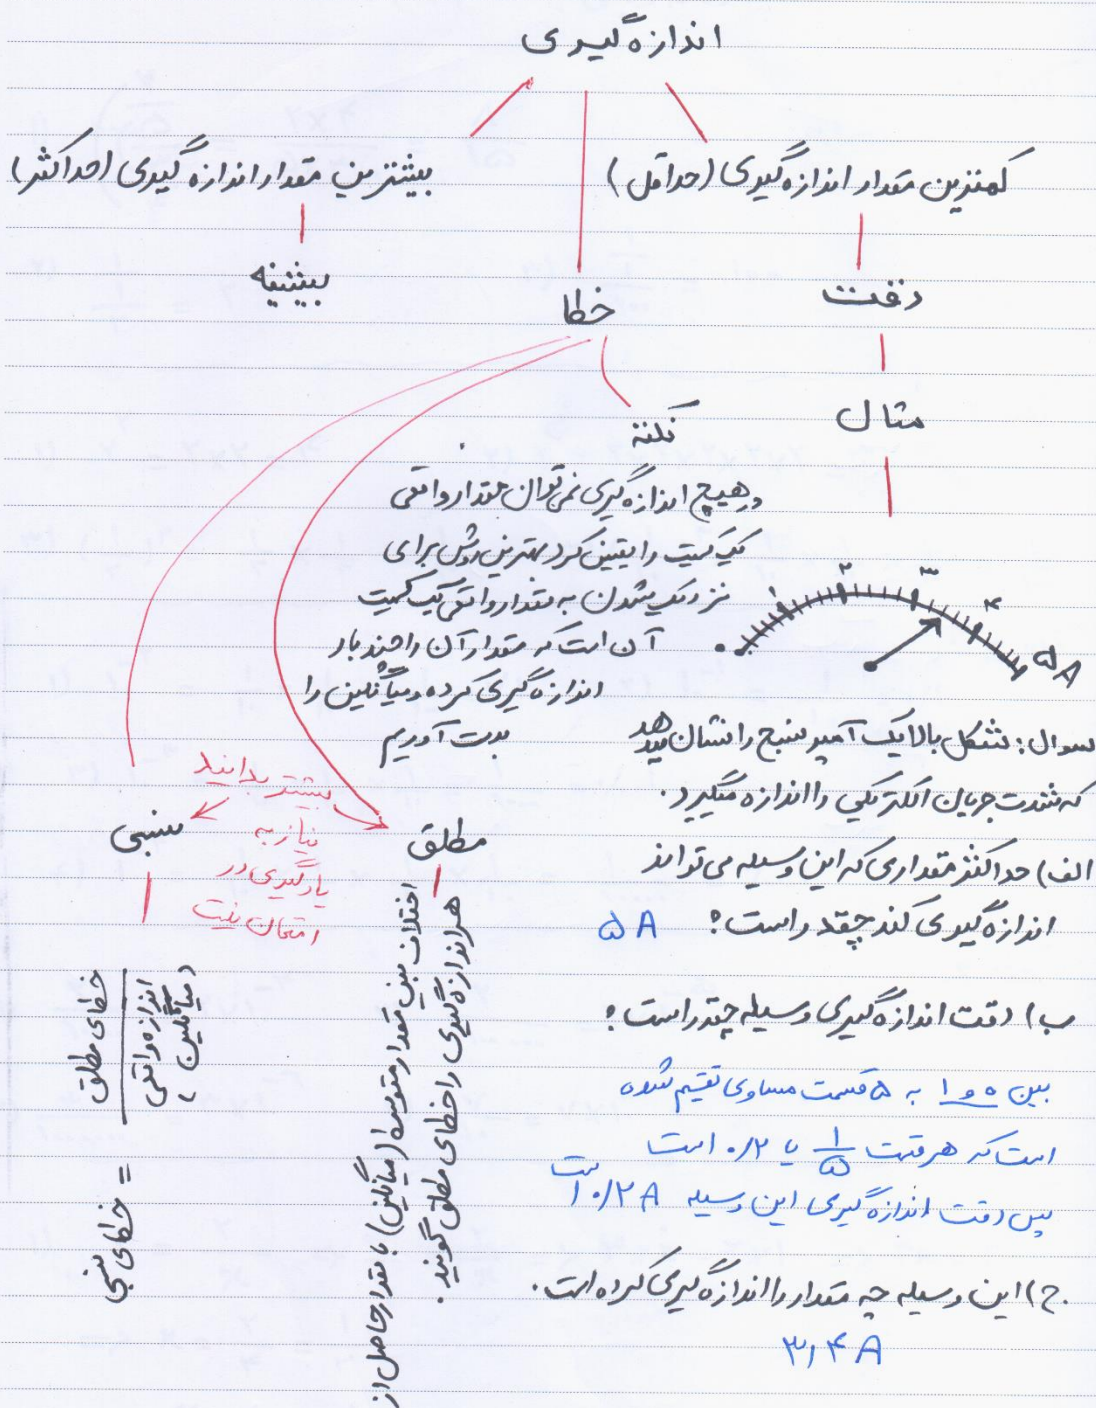 اندازه گیری
کمترین مقدار اندازه گیری (حداقل)
بیشترین مقدار اندازه گیری (حداکثر)
دقت
خطا
بیشینه
مثال
نکته
در هیچ اندازه گیری نمی توان مقدار واقعی
یک کمیت را یقین کرد بهترین روش برای
نزدیک شدن به مقدار واقعی یک کمیت
آن است که مقدار آن را چند بار
اندازه گیری کرده و میانگین را
بدست آوریم
۰ ۱ ۲ ۳ ۴ ۵A
سوال: شکل بالا یک آمپر سنج را نشان میدهد
که شدت جریان الکتریکی را اندازه میگیرد.
الف) حداکثر مقداری که این وسیله می تواند
اندازه گیری کند چقدر است؟ ۵A
ب) دقت اندازه گیری وسیله چقدر است؟
بین ۰ و ۱ به ۵ قسمت مساوی تقسیم شده
است که هر قسمت ۱/۵ یا ۰/۲ است
پس دقت اندازه گیری این وسیله ۰/۲A است
ج) این وسیله چه مقدار را اندازه گیری کرده است.
۳,۴A
بیشتر بدانید
نیاز به
یادگیری در
امتحان نیست
مطلق
اختلاف بین مقدار متوسط (میانگین) با مقدار حاصل از
هر اندازه گیری را خطای مطلق گویند.
نسبی
خطای نسبی = خطای مطلق / اندازه واقعی (میانگین)